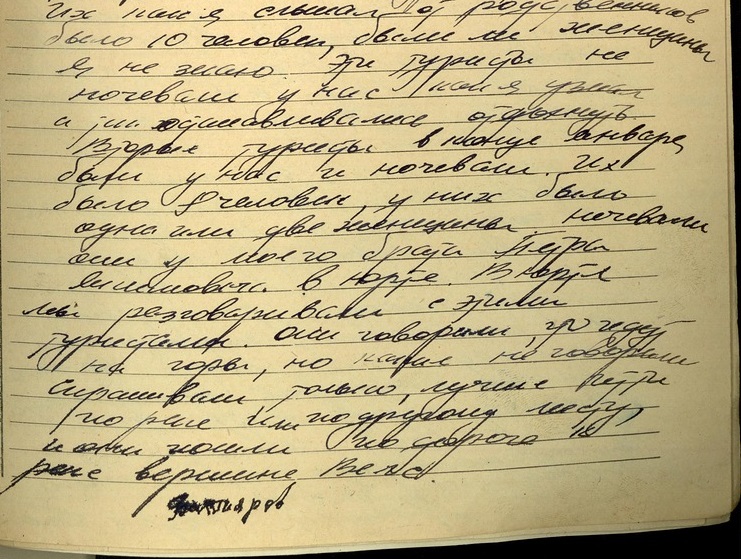 Их как я слышал от родственников
было 10 человек, были ли женщины
я не знаю. Эти туристы не
ночевали у нас как я узнал
а останавливались отдохнуть.
Вторые туристы в конце января
были у нас и ночевали. Их
было 8 человек, у них было
одна или две женщины ночевали
они у моего брата Петра
в юрте. В юрте
мы разговаривали с этими
туристами. они говорили, что идут
на горы, но какие не говорили
спрашивали только, лучше идти
по реке или по другому месту
и они пошли по дороге к
реке вершине